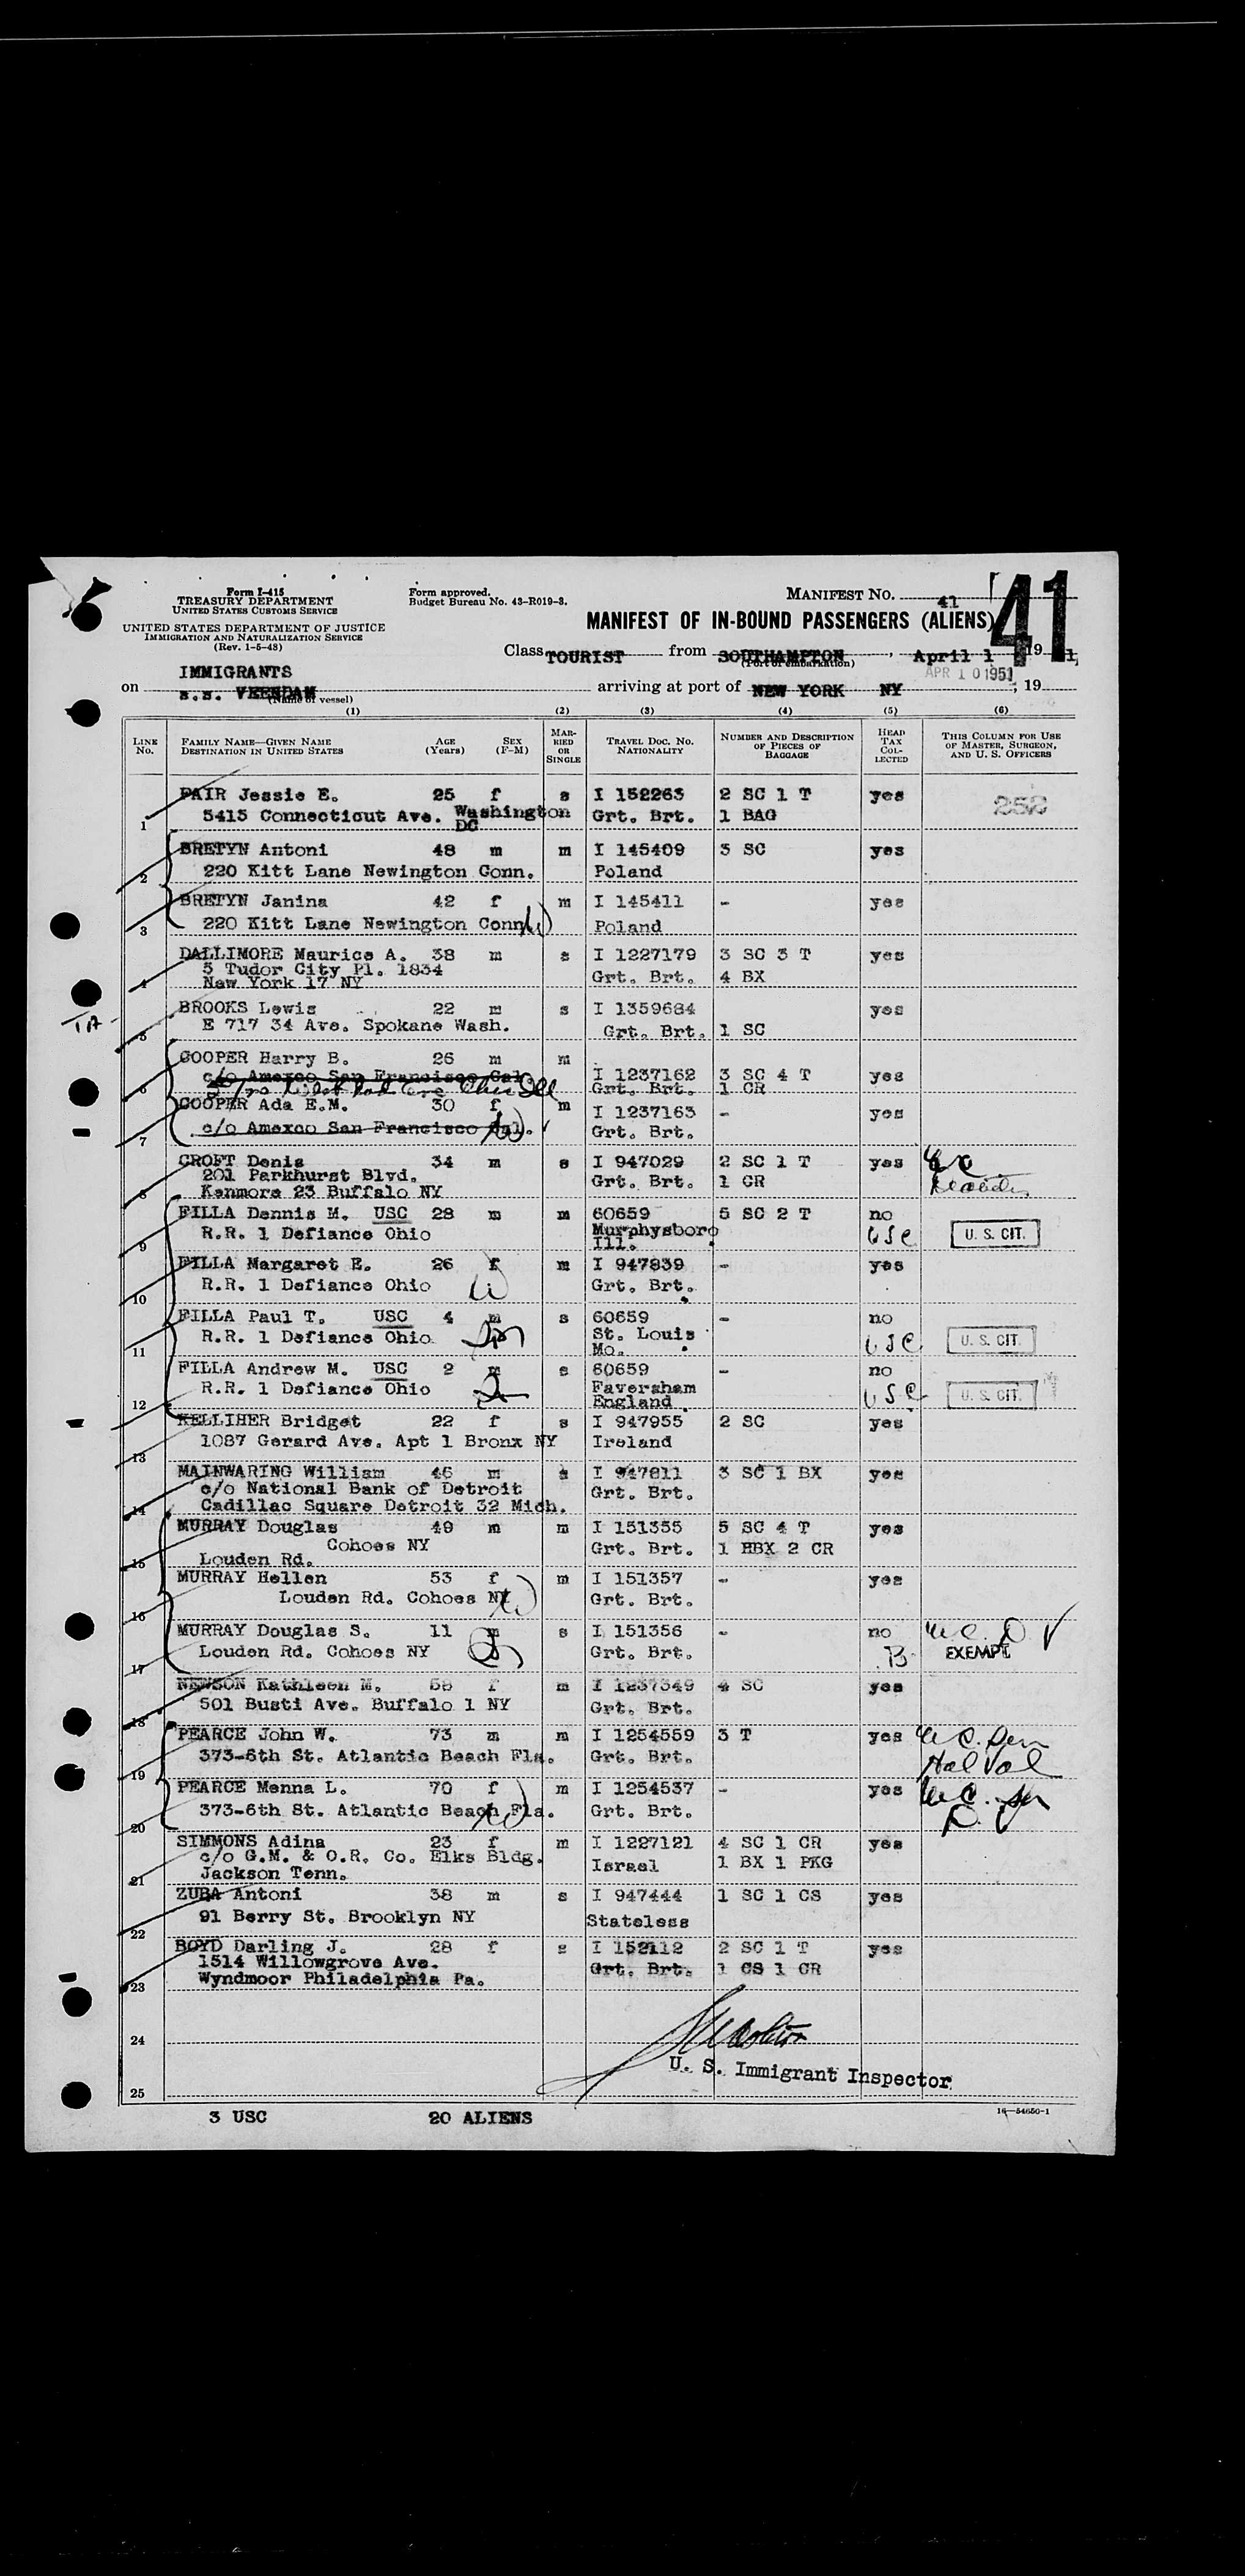 Form I-415
TREASURY DEPARTMENT
UNITED STATES CUSTOMS SERVICE
UNITED STATES DEPARTMENT OF JUSTICE
IMMIGRATION AND NATURALIZATION SERVICE
(Rev. 1-5-48)
Form approved.
Budget Bureau No. 43-R019-3.
MANIFEST NO. 41
41
MANIFEST OF IN-BOUND PASSENGERS (ALIENS)
Class TOURIST from SOUTHAMPTON, April 1 19 1
(Port of embarkation)
IMMIGRANTS
on s.s. VEENDAM arriving at port of NEW YORK NY APR 10 1951, 19
(Name of vessel)
(1) (2) (3) (4) (5) (6)
LINE NO. FAMILY NAME—GIVEN NAME DESTINATION IN UNITED STATES AGE (Years) SEX (F-M) MARRIED OR SINGLE TRAVEL DOC. NO. NATIONALITY NUMBER AND DESCRIPTION OF PIECES OF BAGGAGE HEAD TAX COLLECTED THIS COLUMN FOR USE OF MASTER, SURGEON, AND U. S. OFFICERS
PAIR Jessie E. 25 f s I 152263 2 SC 1 T yes 252
1 5415 Connecticut Ave. Washington DC Grt. Brt. 1 BAG
BRETYN Antoni 48 m m I 145409 3 SC yes
2 220 Kitt Lane Newington Conn. Poland
BRETYN Janina 42 f m I 145411 - yes
3 220 Kitt Lane Newington Conn Poland
DALLIMORE Maurice A. 38 m s I 1227179 3 SC 3 T yes
5 Tudor City Pl. 1834 Grt. Brt. 4 BX
4 New York 17 NY
BROOKS Lewis 22 m s I 1359684 yes
5 E 717 34 Ave. Spokane Wash. Grt. Brt. 1 SC
COOPER Harry B. 26 m m
c/o Amexco San Francisco Cal I 1237162 3 SC 4 T yes
6 Grt. Brt. 1 CR
COOPER Ada E.M. 30 f m I 1237163 - yes
7 c/o Amexco San Francisco Cal. Grt. Brt.
CROFT Denis 34 m s I 947029 2 SC 1 T yes
201 Parkhurst Blvd. Grt. Brt. 1 CR
8 Kenmore 23 Buffalo NY
FILLA Dennis M. USC 28 m m 60659 5 SC 2 T no
9 R.R. 1 Defiance Ohio Murphysboro Ill. USC U. S. CIT.
FILLA Margaret E. 26 f m I 947839 - yes
10 R.R. 1 Defiance Ohio Grt. Brt.
FILLA Paul T. USC 4 m s 60659 - no
11 R.R. 1 Defiance Ohio St. Louis Mo. USC U. S. CIT.
FILLA Andrew M. USC 2 m s 60659 - no
12 R.R. 1 Defiance Ohio Faversham England USC U. S. CIT.
KELLIHER Bridget 22 f s I 947955 2 SC yes
13 1087 Gerard Ave. Apt 1 Bronx NY Ireland
MAINWARING William 46 m s I 947811 3 SC 1 BX yes
c/o National Bank of Detroit Grt. Brt.
14 Cadillac Square Detroit 32 Mich.
MURRAY Douglas 49 m m I 151355 5 SC 4 T yes
Cohoes NY Grt. Brt. 1 HBX 2 CR
15 Louden Rd.
MURRAY Hellen 53 f m I 151357 - yes
16 Louden Rd. Cohoes NY Grt. Brt.
MURRAY Douglas S. 11 m s I 151356 - no
17 Louden Rd. Cohoes NY Grt. Brt. B EXEMPT
NEWSON Kathleen M. 58 f m I 1237349 4 SC yes
18 501 Busti Ave. Buffalo 1 NY Grt. Brt.
PEARCE John W. 73 m m I 1254559 3 T yes
19 373-6th St. Atlantic Beach Fla. Grt. Brt.
PEARCE Menna L. 70 f m I 1254537 - yes
20 373-6th St. Atlantic Beach Fla. Grt. Brt.
SIMMONS Adina 23 f m I 1227121 4 SC 1 CR yes
c/o G.M. & O.R. Co. Elks Bldg. Israel 1 BX 1 PKG
21 Jackson Tenn.
ZUBA Antoni 38 m s I 947444 1 SC 1 CS yes
22 91 Berry St. Brooklyn NY Stateless
BOYD Darling J. 28 f s I 152112 2 SC 1 T yes
1514 Willowgrove Ave. Grt. Brt. 1 CS 1 CR
23 Wyndmoor Philadelphia Pa.
24
U. S. Immigrant Inspector
25
3 USC 20 ALIENS
16—54650-1